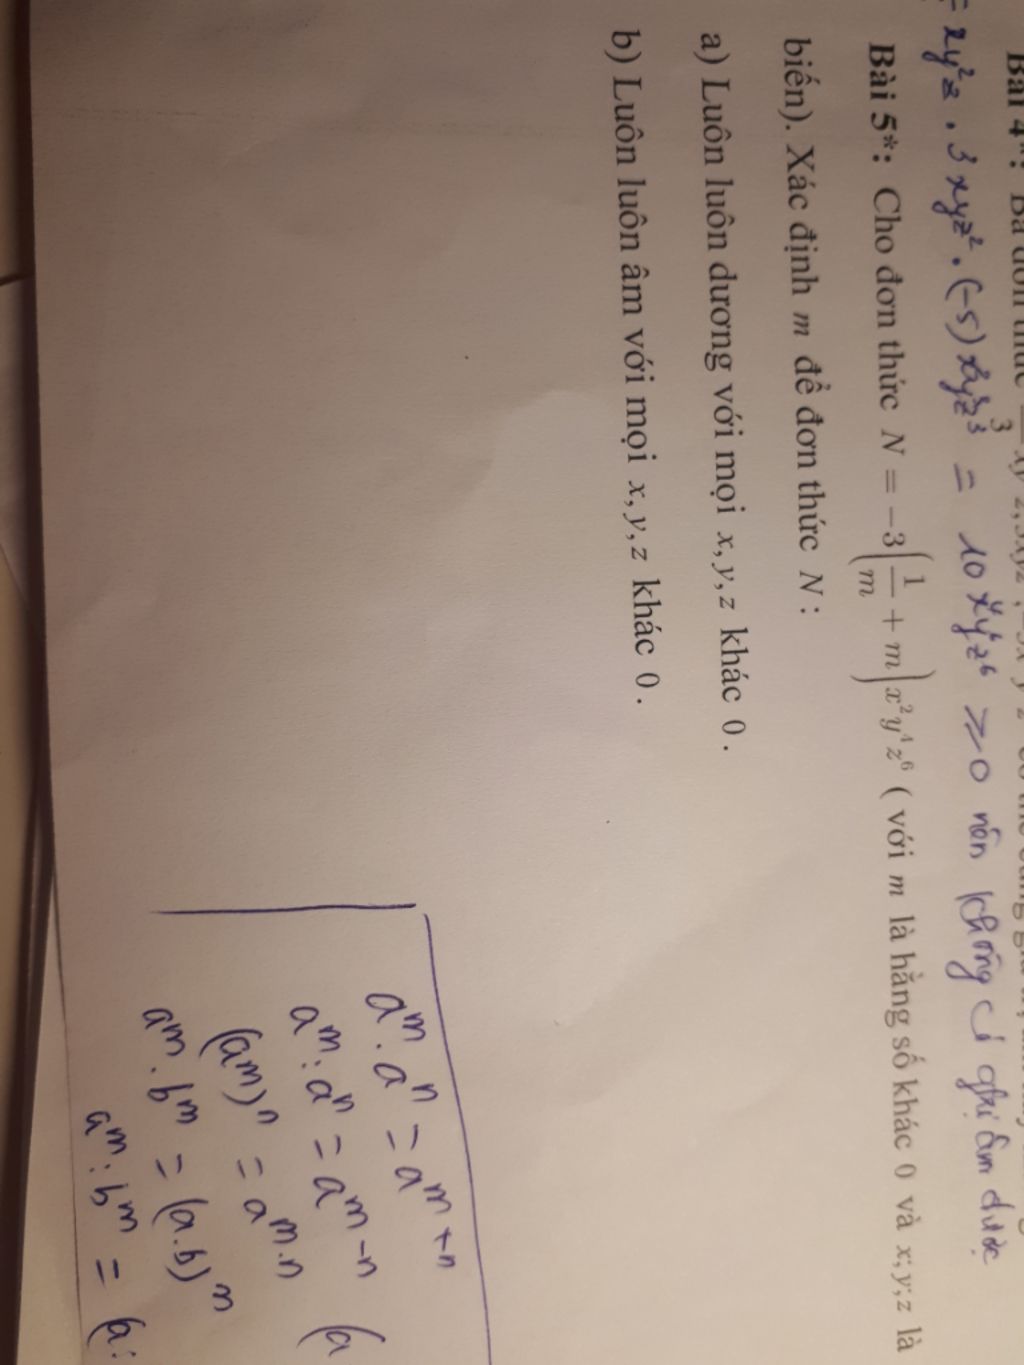 Bài 4*: Ba đơn thức
= xy²z . 3xyz² . (-5)x²y³z³ = 10x⁴y⁶z⁶ ≥ 0 nên không có
Bài 5*: Cho đơn thức N = -3(1/m + m)x²y⁴z⁶ ( với m là hằng số khác 0 và x; y; z là
biến). Xác định m để đơn thức N :
a) Luôn luôn dương với mọi x, y, z khác 0 .
b) Luôn luôn âm với mọi x, y, z khác 0 .
aᵐ . aⁿ = aᵐ⁺ⁿ
aᵐ : aⁿ = aᵐ⁻ⁿ (a
(aᵐ)ⁿ = aᵐ·ⁿ
aᵐ . bᵐ = (a.b)ⁿ
aᵐ : bᵐ = (a: